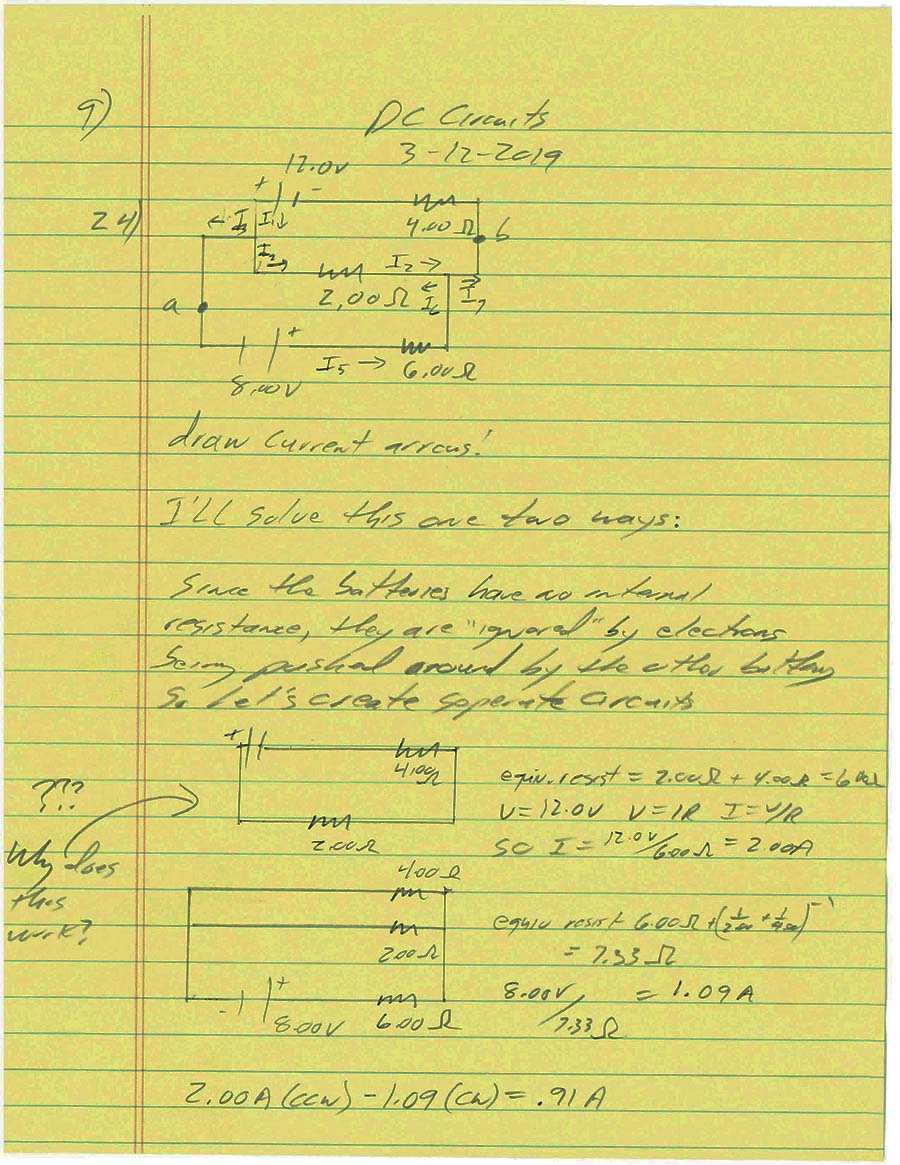 9)
DC Circuits
3-12-2019
24)
12.0V
+ -
← I3 I1 ↓
4.00 Ω
b
I2 →
I2 →
2.00 Ω
← I6
I7
a
+
8.00V
I5 →
6.00 Ω
draw current arrows!
I'll solve this one two ways:
Since the batteries have no internal
resistance, they are "ignored" by electrons
being pushed around by the other battery
So let's create seperate circuits
+
4.00Ω
2.00Ω
equiv. resist = 2.00Ω + 4.00Ω = 6.00Ω
V=12.0V V=IR I=V/R
so I = 12.0V/6.00Ω = 2.00A
???
Why does
this
work?
4.00Ω
2.00Ω
- +
8.00V 6.00Ω
equiv resist 6.00Ω + (1/2Ω + 1/4Ω)⁻¹
= 7.33 Ω
8.00V/7.33Ω = 1.09 A
2.00A (CCW) - 1.09 (CW) = .91 A